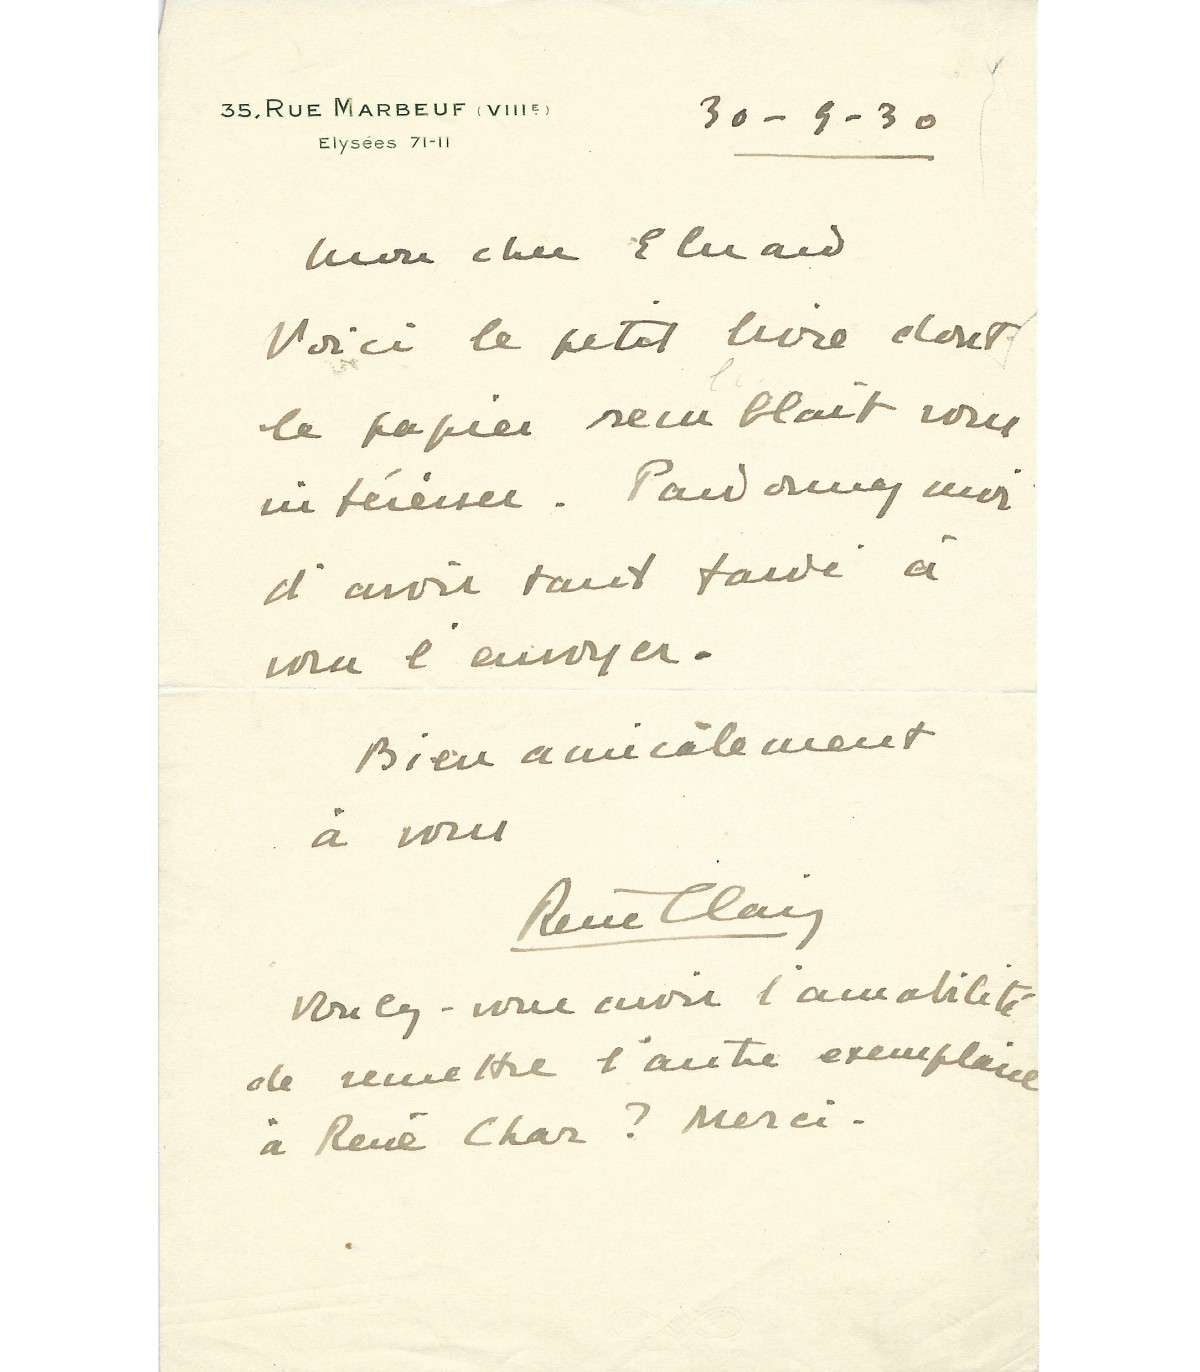 35, RUE MARBEUF (VIIIE)
Elysées 71-11
30-9-30
Mon cher Eluard
Voici le petit livre dont
le papier semblait vous
intéresser. Pardonnez moi
d'avoir tant tardé à
vous l'envoyer.
Bien amicalement
à vous
René Clair
Voulez-vous avoir l'amabilité
de remettre l'autre exemplaire
à René Char ? Merci.